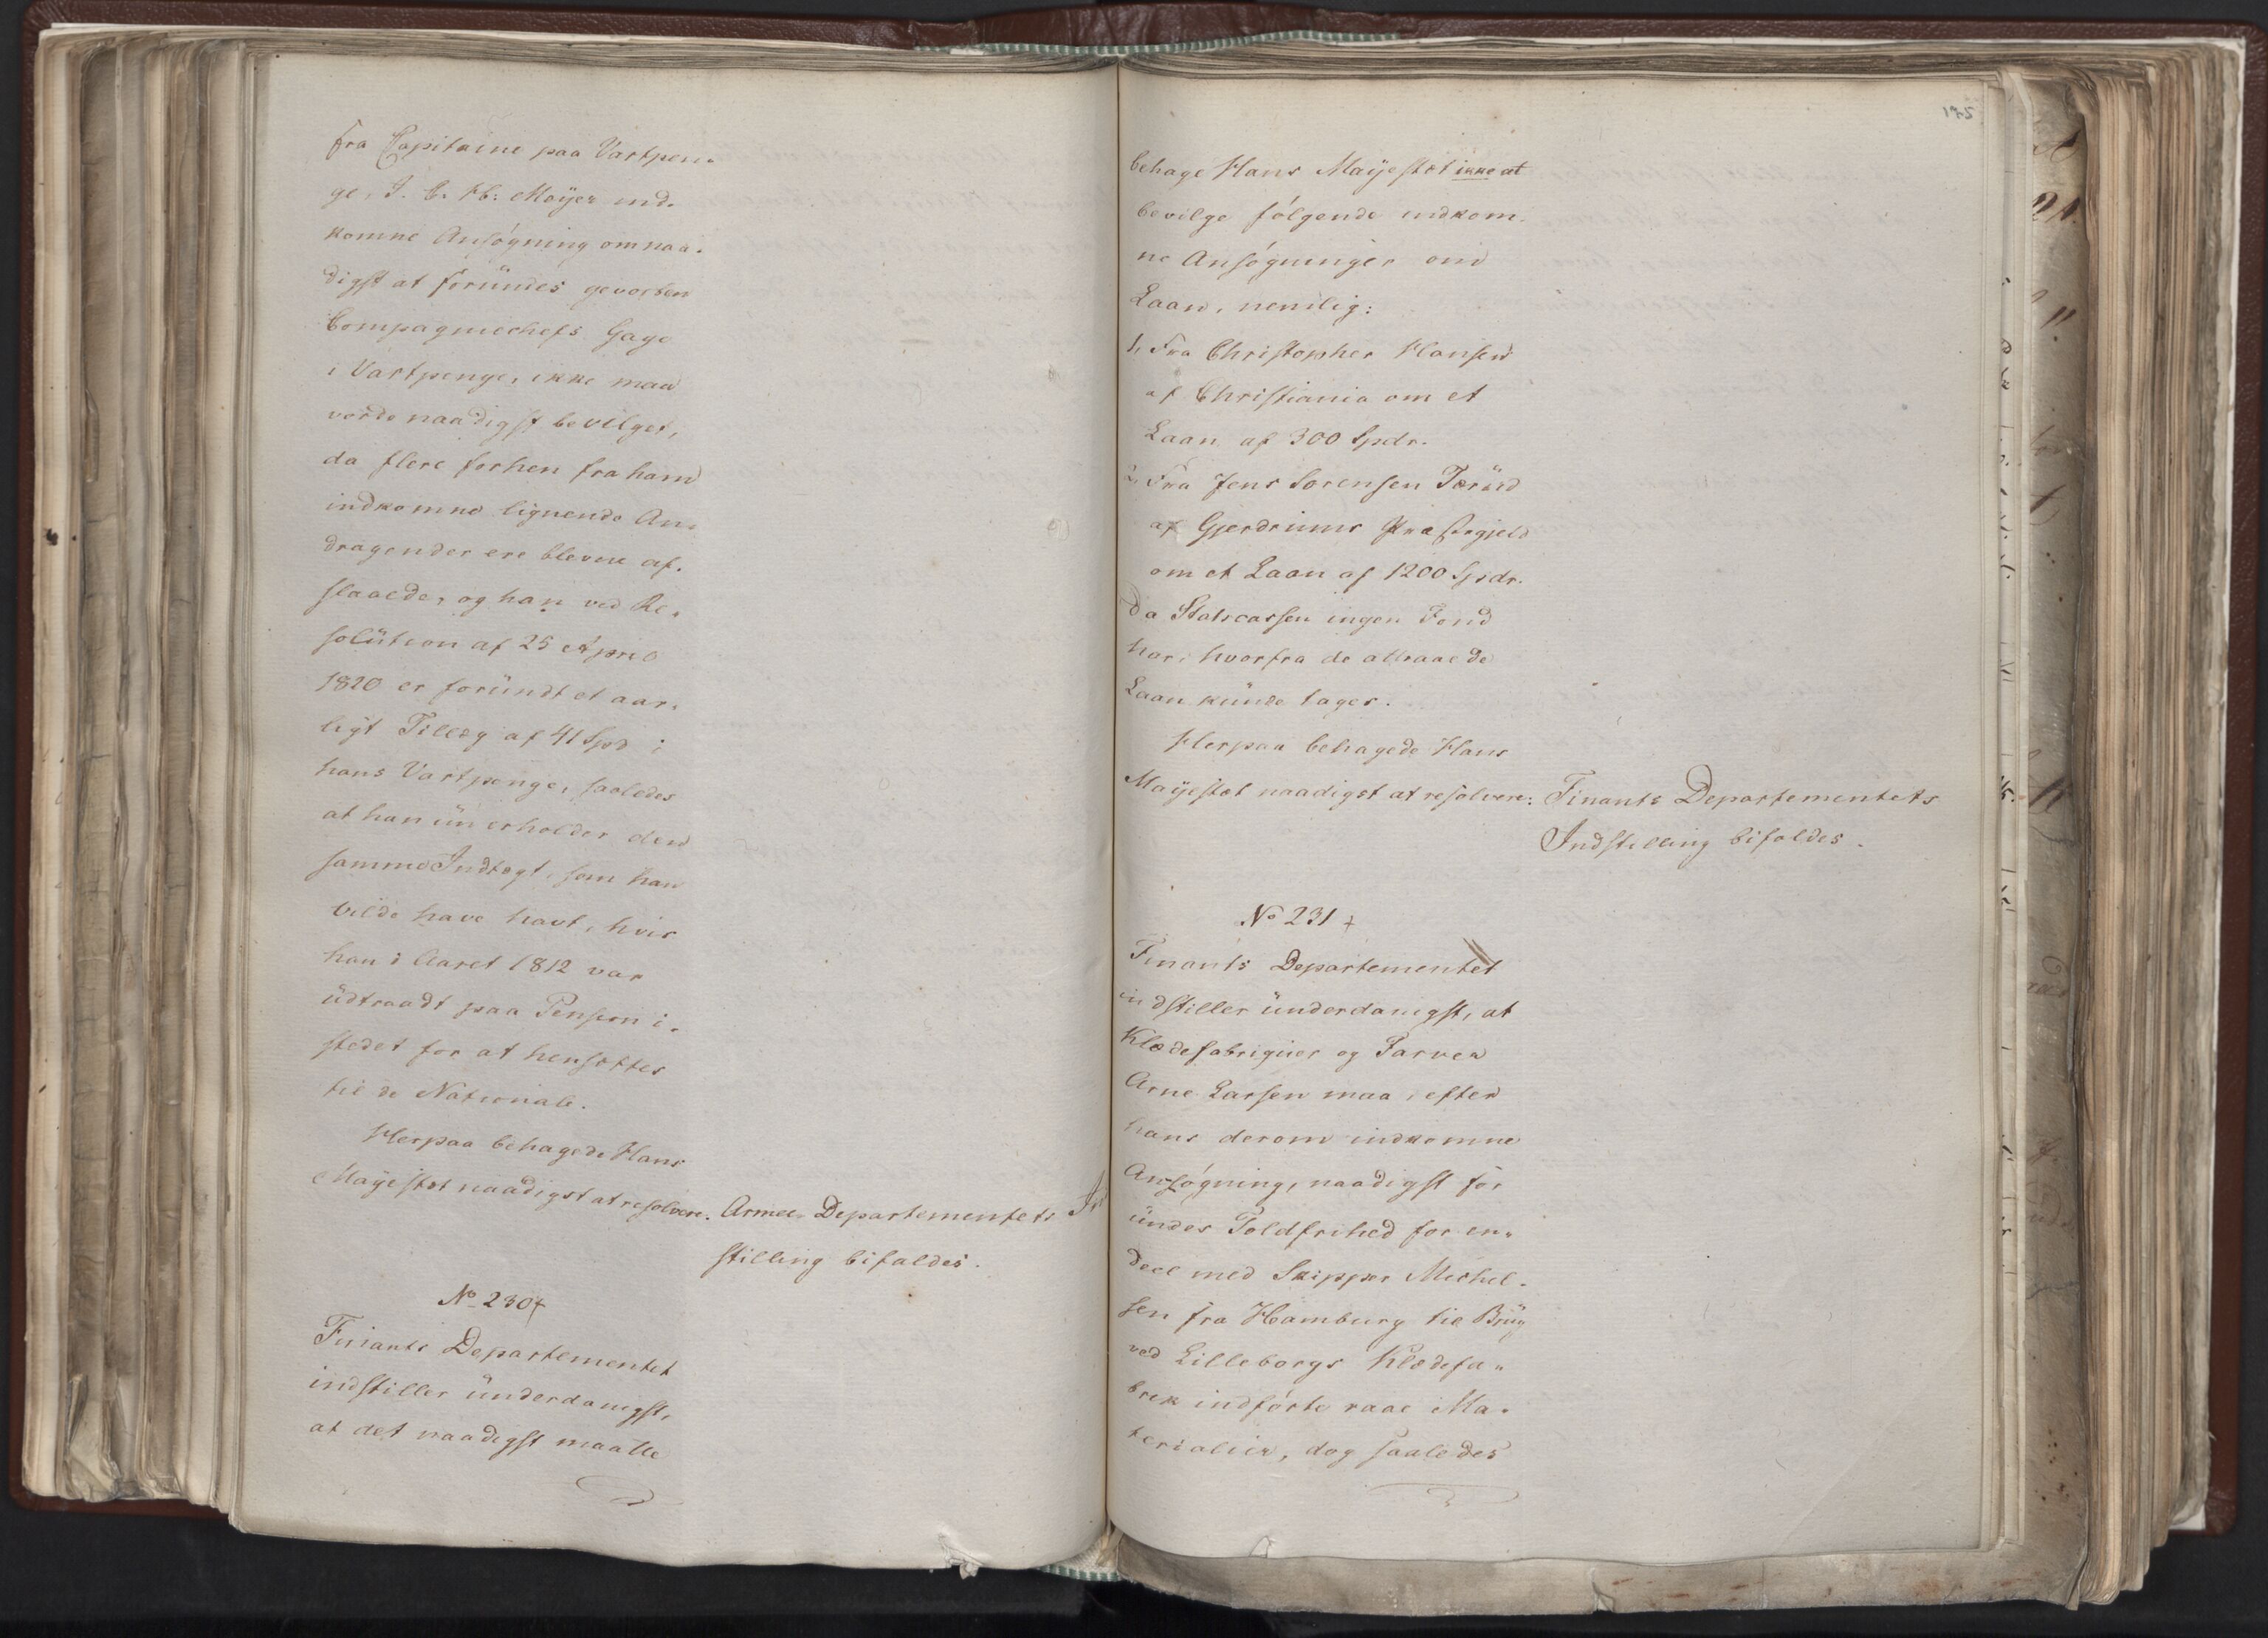 fra Capitaine paa Vartpen-
ge, J. C. H: Meÿer ind-
komne Ansøgning om naa-
digst at forundes gevorben
Compagniechefs Gage
i Vartpenge, ikke maa
vorde naadigst bevilget,
da flere forhen fra ham
indkomne lignende An-
dragender ere blevne af-
slaaede, og han ved Re-
solution af 25 April
1820 er forundt et aar-
ligt Tillæg af 41 Spd i
hans Vartpenge, saaledes
at han nu erholder den
samme Indtægt, som han
vilde have havt, hvis
han i Aaret 1812 var
udtraadt paa Pension i-
stedet for at hensættes
til de Nationale.
Herpaa behagede Hans
Majestæt naadigst at resolvere. Armee-Departementets In
stilling bifaldes.
No 230
Finants Departementet
indstiller underdanigst,
at det naadigst maatte
175
behage Hans Majestæt ikke at
bevilge følgende indkom-
ne Ansøgninger om
Laan, nemlig:
1, Fra Christopher Hansen
af Christiania om et
Laan af 300 Spdr.
2, Fra Jens Sørensen
af Gjerdrums Præstegjeld
om et Laan af 1200 Spdr.
Da Statscassen ingen Fond
har, hvorfra de attraaede
Laan kunde tages.
Herpaa behagede Hans
Majestæt naadigst at resolvere: Finants Departementets
Indstilling bifaldes.
No 231
Finants Departementet
indstiller underdanigst, at
Klædefabriquer og Farver
Arne Larsen maa, efter
hans derom indkomne
Ansøgning, naadigst for
undes Toldfrihed for en-
deel med Skipper Michel-
sen fra Hamburg til Brug
ved Lilleborgs Klædefa-
brik indførte raae Ma-
terialier, dog saaledes